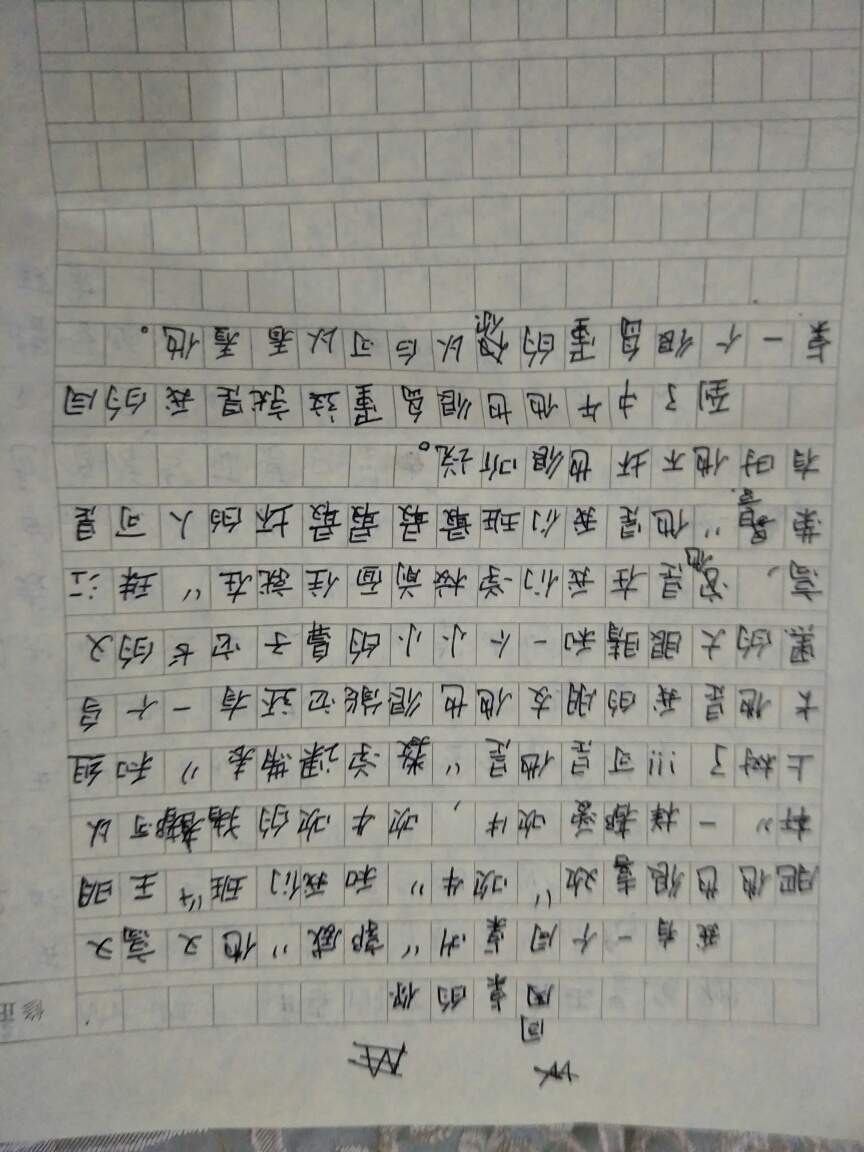 同桌的你
修正
我有一个同桌叫"郭威"他又高又
肥他也很喜欢"吹牛"和我们班"牛王明
轩"一样都爱吹牛,吹牛吹的猪都可以
上树了!!!可是他是"数学课带表"和组
长他是我的朋友他也很能记还有一个乌
黑的大眼睛和一个小小的鼻子它长的又
高,他是在我们学校前面住就在"珠江
荣景"他是我们班最最最最坏的人可是
有时他不坏也很听说。
到了中午他也很鸟重这就是我的同
桌一个很鸟重的你以后可以看看他。